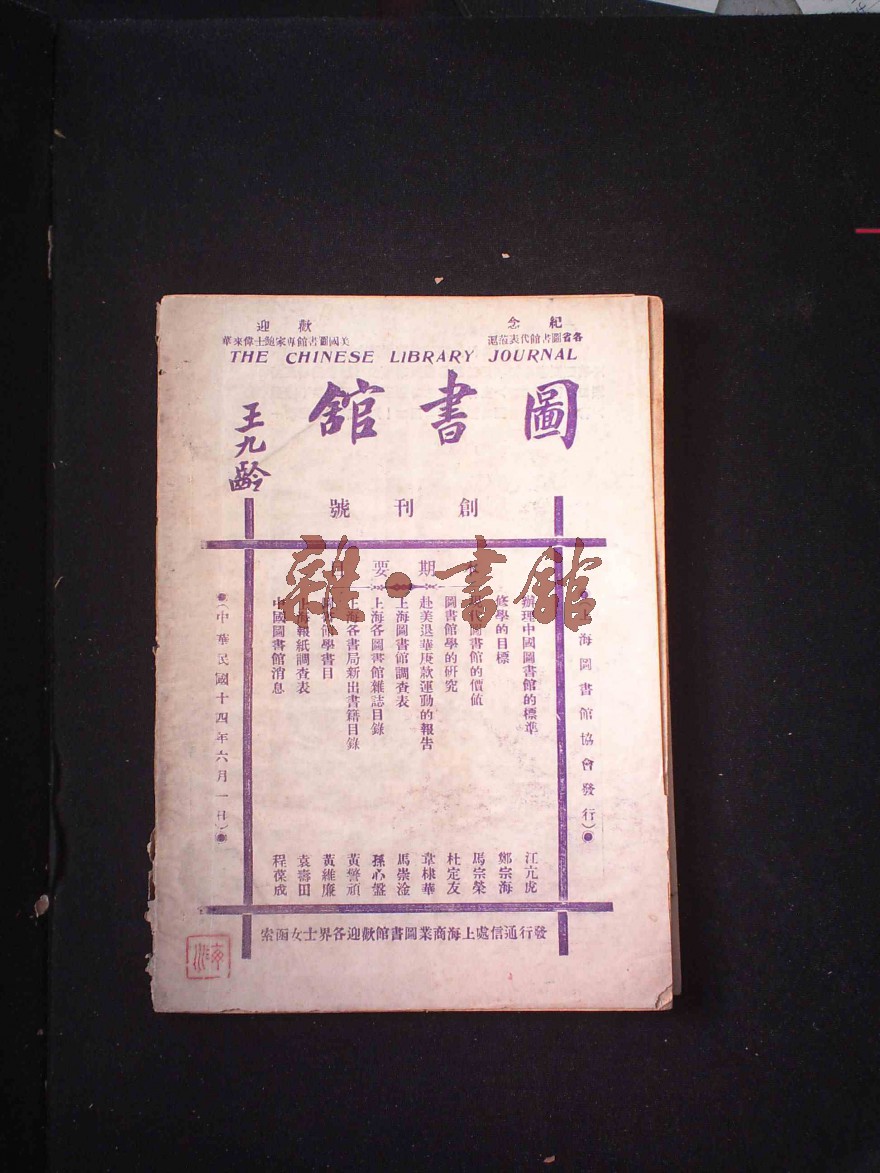 紀念
各省圖書館代表蒞滬
歡迎
美國圖書館專家鮑士偉來華
THE CHINESE LIBRARY JOURNAL
圖書館
王九齡
創刊號
期要
雜·書館
上海圖書館協會發行
辦理中國圖書館的標準 江亢虎
修學的目標 鄭宗海
圖書館的價值 馬宗榮
圖書館學的研究 杜定友
赴美退華庚款運動的報告 韋棣華
上海圖書館調查表 馬崇淦
上海各圖書館雜誌目錄 孫心盤
上海各書局新出書籍目錄 黃警頑
學書目 黃維廉
上海報紙調查表 袁壽田
中國圖書館消息 程葆成
(中華民國十四年六月一日)
發行通信處上海商業圖書館歡迎各界士女函索